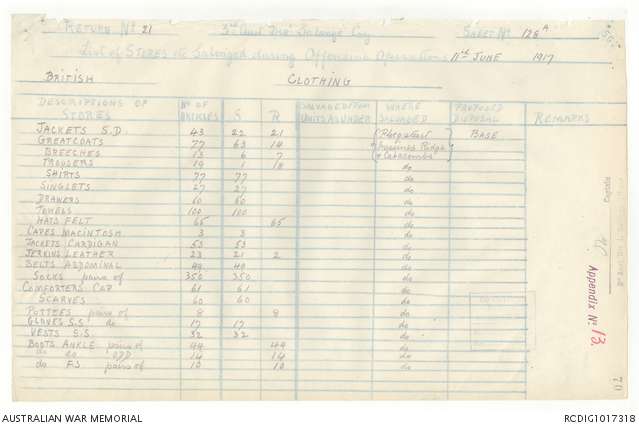 RETURN No 21 3rd Aust Div Salvage Coy SHEET No 128A
List of STORES etc Salvaged during Offensive Operations 11th JUNE 1917
BRITISH CLOTHING
DESCRIPTIONS OF STORES No OF ARTICLES S R SALVAGED FROM UNITS AS UNDER WHERE SALVAGED PROPOSED DISPOSAL REMARKS
JACKETS S.D. 43 22 21 (Ploegsteert BASE
GREATCOATS 77 63 14 Messines Ridge
BREECHES 13 6 7 & Catacombs)
TROUSERS 19 1 18 do
SHIRTS 77 77 do
SINGLETS 27 27 do
DRAWERS 60 60 do
TOWELS 100 100 do
HATS FELT 65 65 do
CAPES MACINTOSH 3 3 do
JACKETS CARDIGAN 53 53 do
JERKINS LEATHER 23 21 2 do
BELTS ABDOMINAL 49 49 do
SOCKS pairs of 350 350 do
COMFORTERS CAP 61 61 do
SCARVES 60 60 do
PUTTEES pairs of 8 8 do
GLOVES S.S. do 17 17 do
VESTS S.S. 32 32 do
BOOTS ANKLE pairs of 44 44 do
do do ODD 14 14 do
do F.S. pairs of 10 10 do
Appendix No 13
AUSTRALIAN WAR MEMORIAL RCDIG1017318